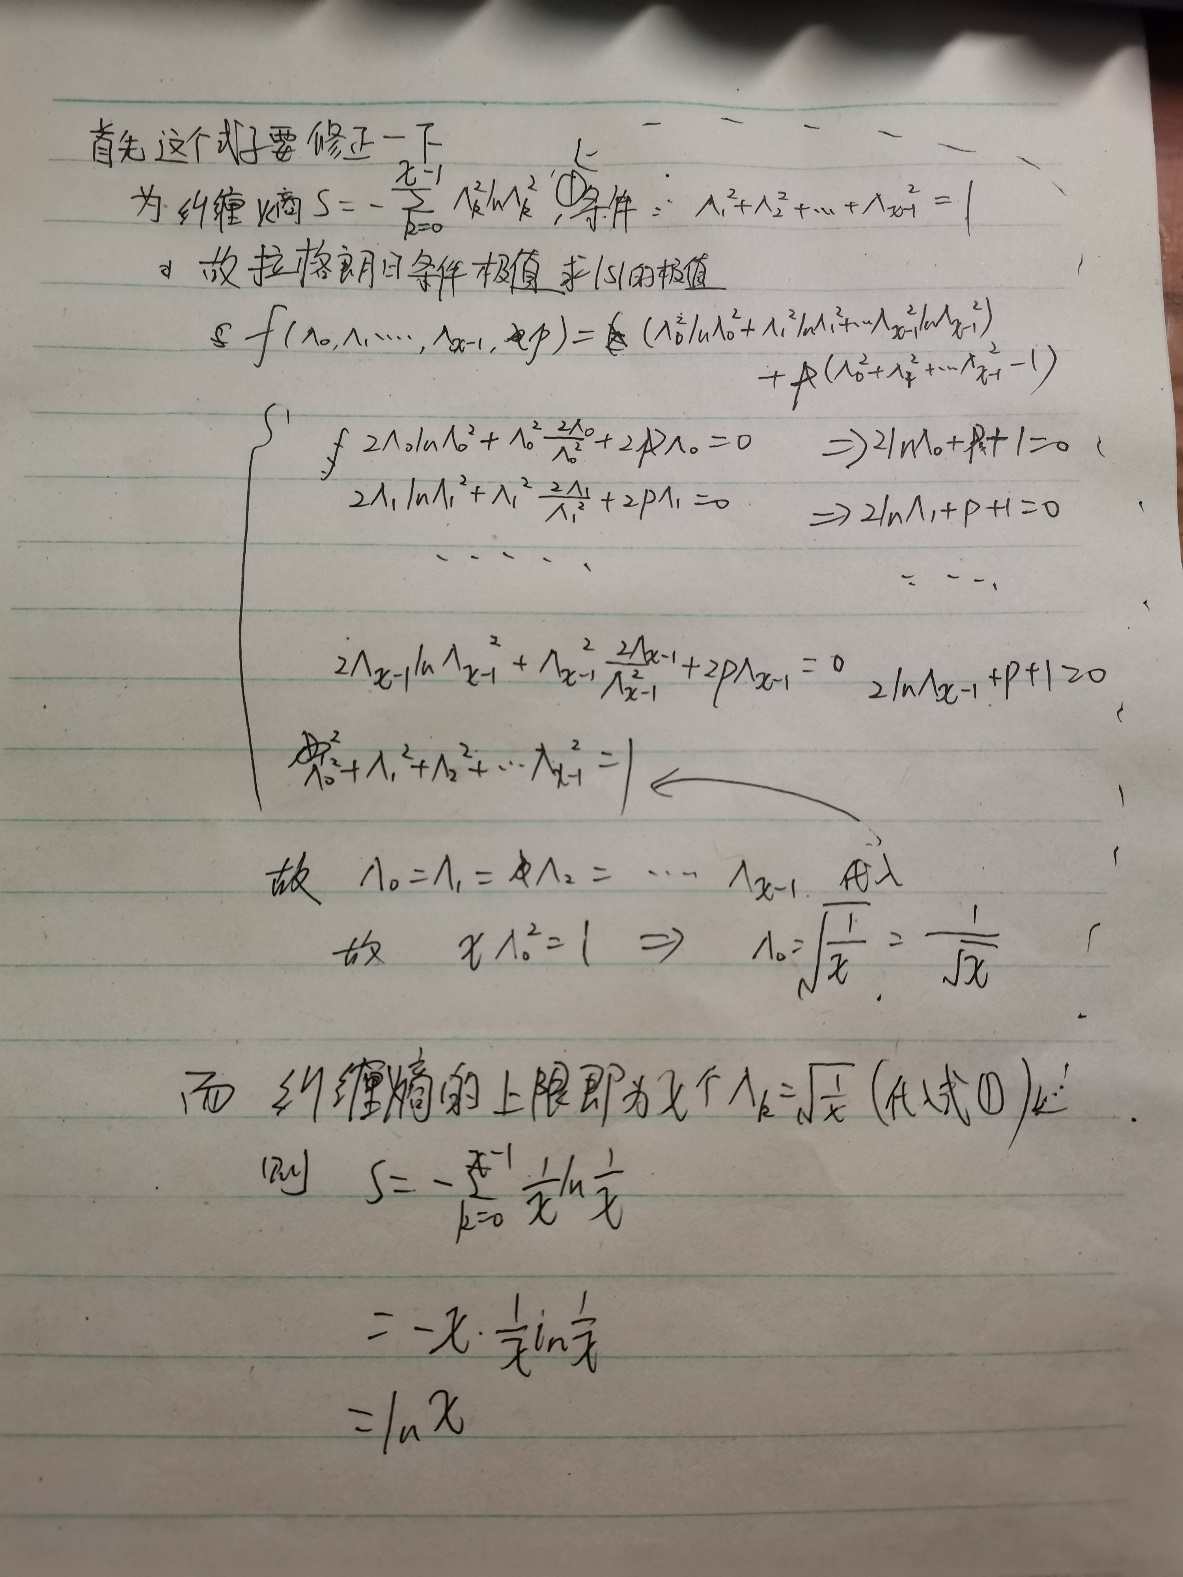 首先这个式子要修正一下
为纠缠熵 S = -∑_{k=0}^{x-1} Λ_k² ln Λ_k² ① 条件: Λ_1²+Λ_2²+…+Λ_{x-1}² = 1
故拉格朗日条件极值求|S|的极值
f(Λ_0,Λ_1……,Λ_{x-1},p) = (Λ_0² ln Λ_0² + Λ_1² ln Λ_1² + …Λ_{x-1}² ln Λ_{x-1}²)
+ p(Λ_0²+Λ_1²+…Λ_{x-1}² -1)
2Λ_0 ln Λ_0² + Λ_0² 2Λ_0/Λ_0² + 2pΛ_0 = 0 ⇒ 2lnΛ_0 + p + 1 = 0
2Λ_1 ln Λ_1² + Λ_1² 2Λ_1/Λ_1² + 2pΛ_1 = 0 ⇒ 2lnΛ_1 + p + 1 = 0
…… ……
2Λ_{x-1} ln Λ_{x-1}² + Λ_{x-1}² 2Λ_{x-1}/Λ_{x-1}² + 2pΛ_{x-1} = 0 2lnΛ_{x-1} + p + 1 = 0
Λ_0²+Λ_1²+Λ_2²+…Λ_{x-1}² = 1
故 Λ_0 = Λ_1 = Λ_2 = …… Λ_{x-1} 代入
故 xΛ_0² = 1 ⇒ Λ_0 = √(1/x) = 1/√x
而纠缠熵的上限即为x个Λ_k = √(1/x) (代入式①)
则 S = -∑_{k=0}^{x-1} 1/x ln 1/x
= -x · 1/x ln 1/x
= ln x